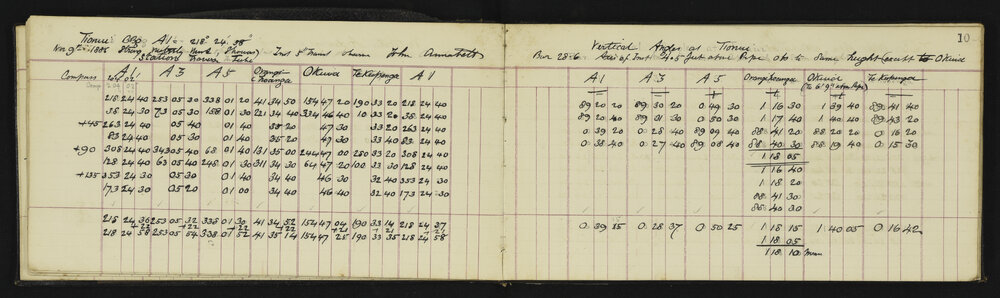 10
Tinui Obs. A1 218° 24' 58"
Nov 9th 1886 Strong Westerly Wind Inst 5" Transit
Station
Vertical Angles at Tinui
Bar 28.6 Axis of Inst 4.5 feet above Pipe obs to same height except to Okiwa
Compass A1 A3 A5 Orangi- Okiwa Te Kupenga A1
218 24 40 253 05 30 338 01 20 41 34 50 154 47 20 190 33 20 218 24 40
38 24 30 73 05 30 158 01 30 221 34 40 334 46 40 10 33 20 38 24 40
+45 263 24 40 05 40 01 40 35 20 47 30 33 20 263 24 40
83 24 40 05 30 01 40 35 20 47 30 33 40 83 24 40
+90 308 24 40 343 05 40 68 01 40 131 35 00 244 47 00 280 33 20 308 24 40
128 24 40 63 05 40 248 01 30 311 34 30 64 47 20 100 33 30 128 24 40
+135 353 24 30 05 30 01 40 34 40 46 30 32 40 353 24 30
173 24 30 05 20 01 00 34 40 46 40 32 40 173 24 30
218 24 36 253 05 32 338 01 30 41 34 52 154 47 04 190 33 14 218 24 37
+22 +22 +22 +22 +21 +21 +21
218 24 58 253 05 54 338 01 52 41 35 14 154 47 25 190 33 35 218 24 58
A1 A3 A5 Okiwa Te Kupenga
89 20 20 89 30 20 0 49 30 1 16 30 1 39 40 89 41 40
89 20 40 89 01 30 0 50 30 1 17 40 1 40 40 89 43 20
0 39 20 0 28 40 89 09 40 88 41 20 88 20 20 0 16 20
0 38 40 0 27 40 89 08 40 88 40 30 88 19 40 0 15 30
1 18 05
1 16 40
1 18 20
88 41 30
88 40 30
0 39 15 0 28 37 0 50 25 1 18 15 1 40 05 0 16 42
1 18 05
1 18 10 mean